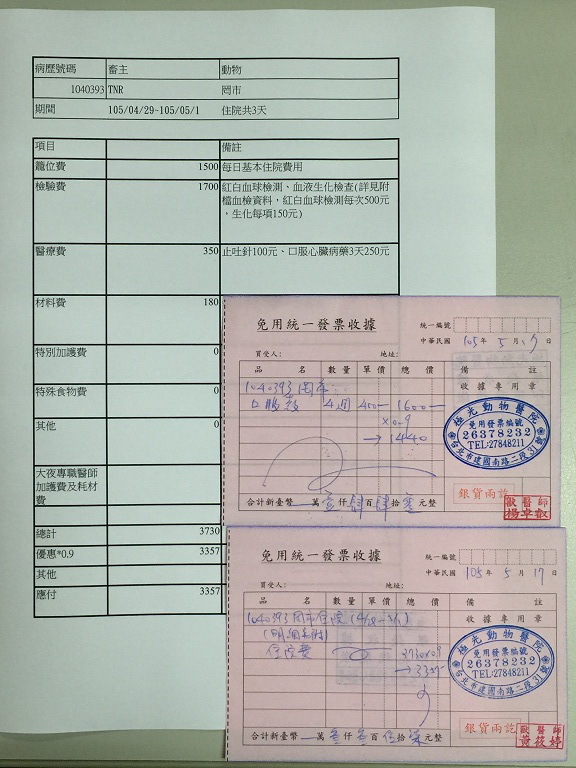 病歷號碼 畜主 動物
1040393 TNR 罔市
期間 105/04/29~105/05/1 住院共3天
項目 備註
籠位費 1500 每日基本住院費用
檢驗費 1700 紅白血球檢測、血液生化檢查(詳見附
檔血檢資料，紅白血球檢測每次500元
，生化每項150元)
醫療費 350 止吐針100元、口服心臟病藥3天250元
材料費 180
特別加護費 0
特殊食物費 0
其他 0
大夜專職醫師
加護費及耗材
費
總計 3730
優惠*0.9 3357
其他
應付 3357
免用統一發票收據 統一編號
中華民國 105年 5月 17日
買受人： 地址：
品名 數量 單價 總價 備註
收據專用章
1040393 罔市
4週 400 1600
x0.9
→1440
極光動物醫院
免用發票編號
26378232
TEL:27848211
台北市建國南路二段31號
銀貨兩訖
獸醫師
楊卓叡
合計新臺幣 萬壹仟肆百肆拾零元整
免用統一發票收據 統一編號
中華民國 105年 5月 17日
買受人： 地址：
品名 數量 單價 總價 備註
收據專用章
1040393 罔市住院
(明細如附)
住院費 3730x0.9
→3357
極光動物醫院
免用發票編號
26378232
TEL:27848211
台北市建國南路二段31號
銀貨兩訖
獸醫師
黃筱婷
合計新臺幣 萬叁仟叁百伍拾柒元整